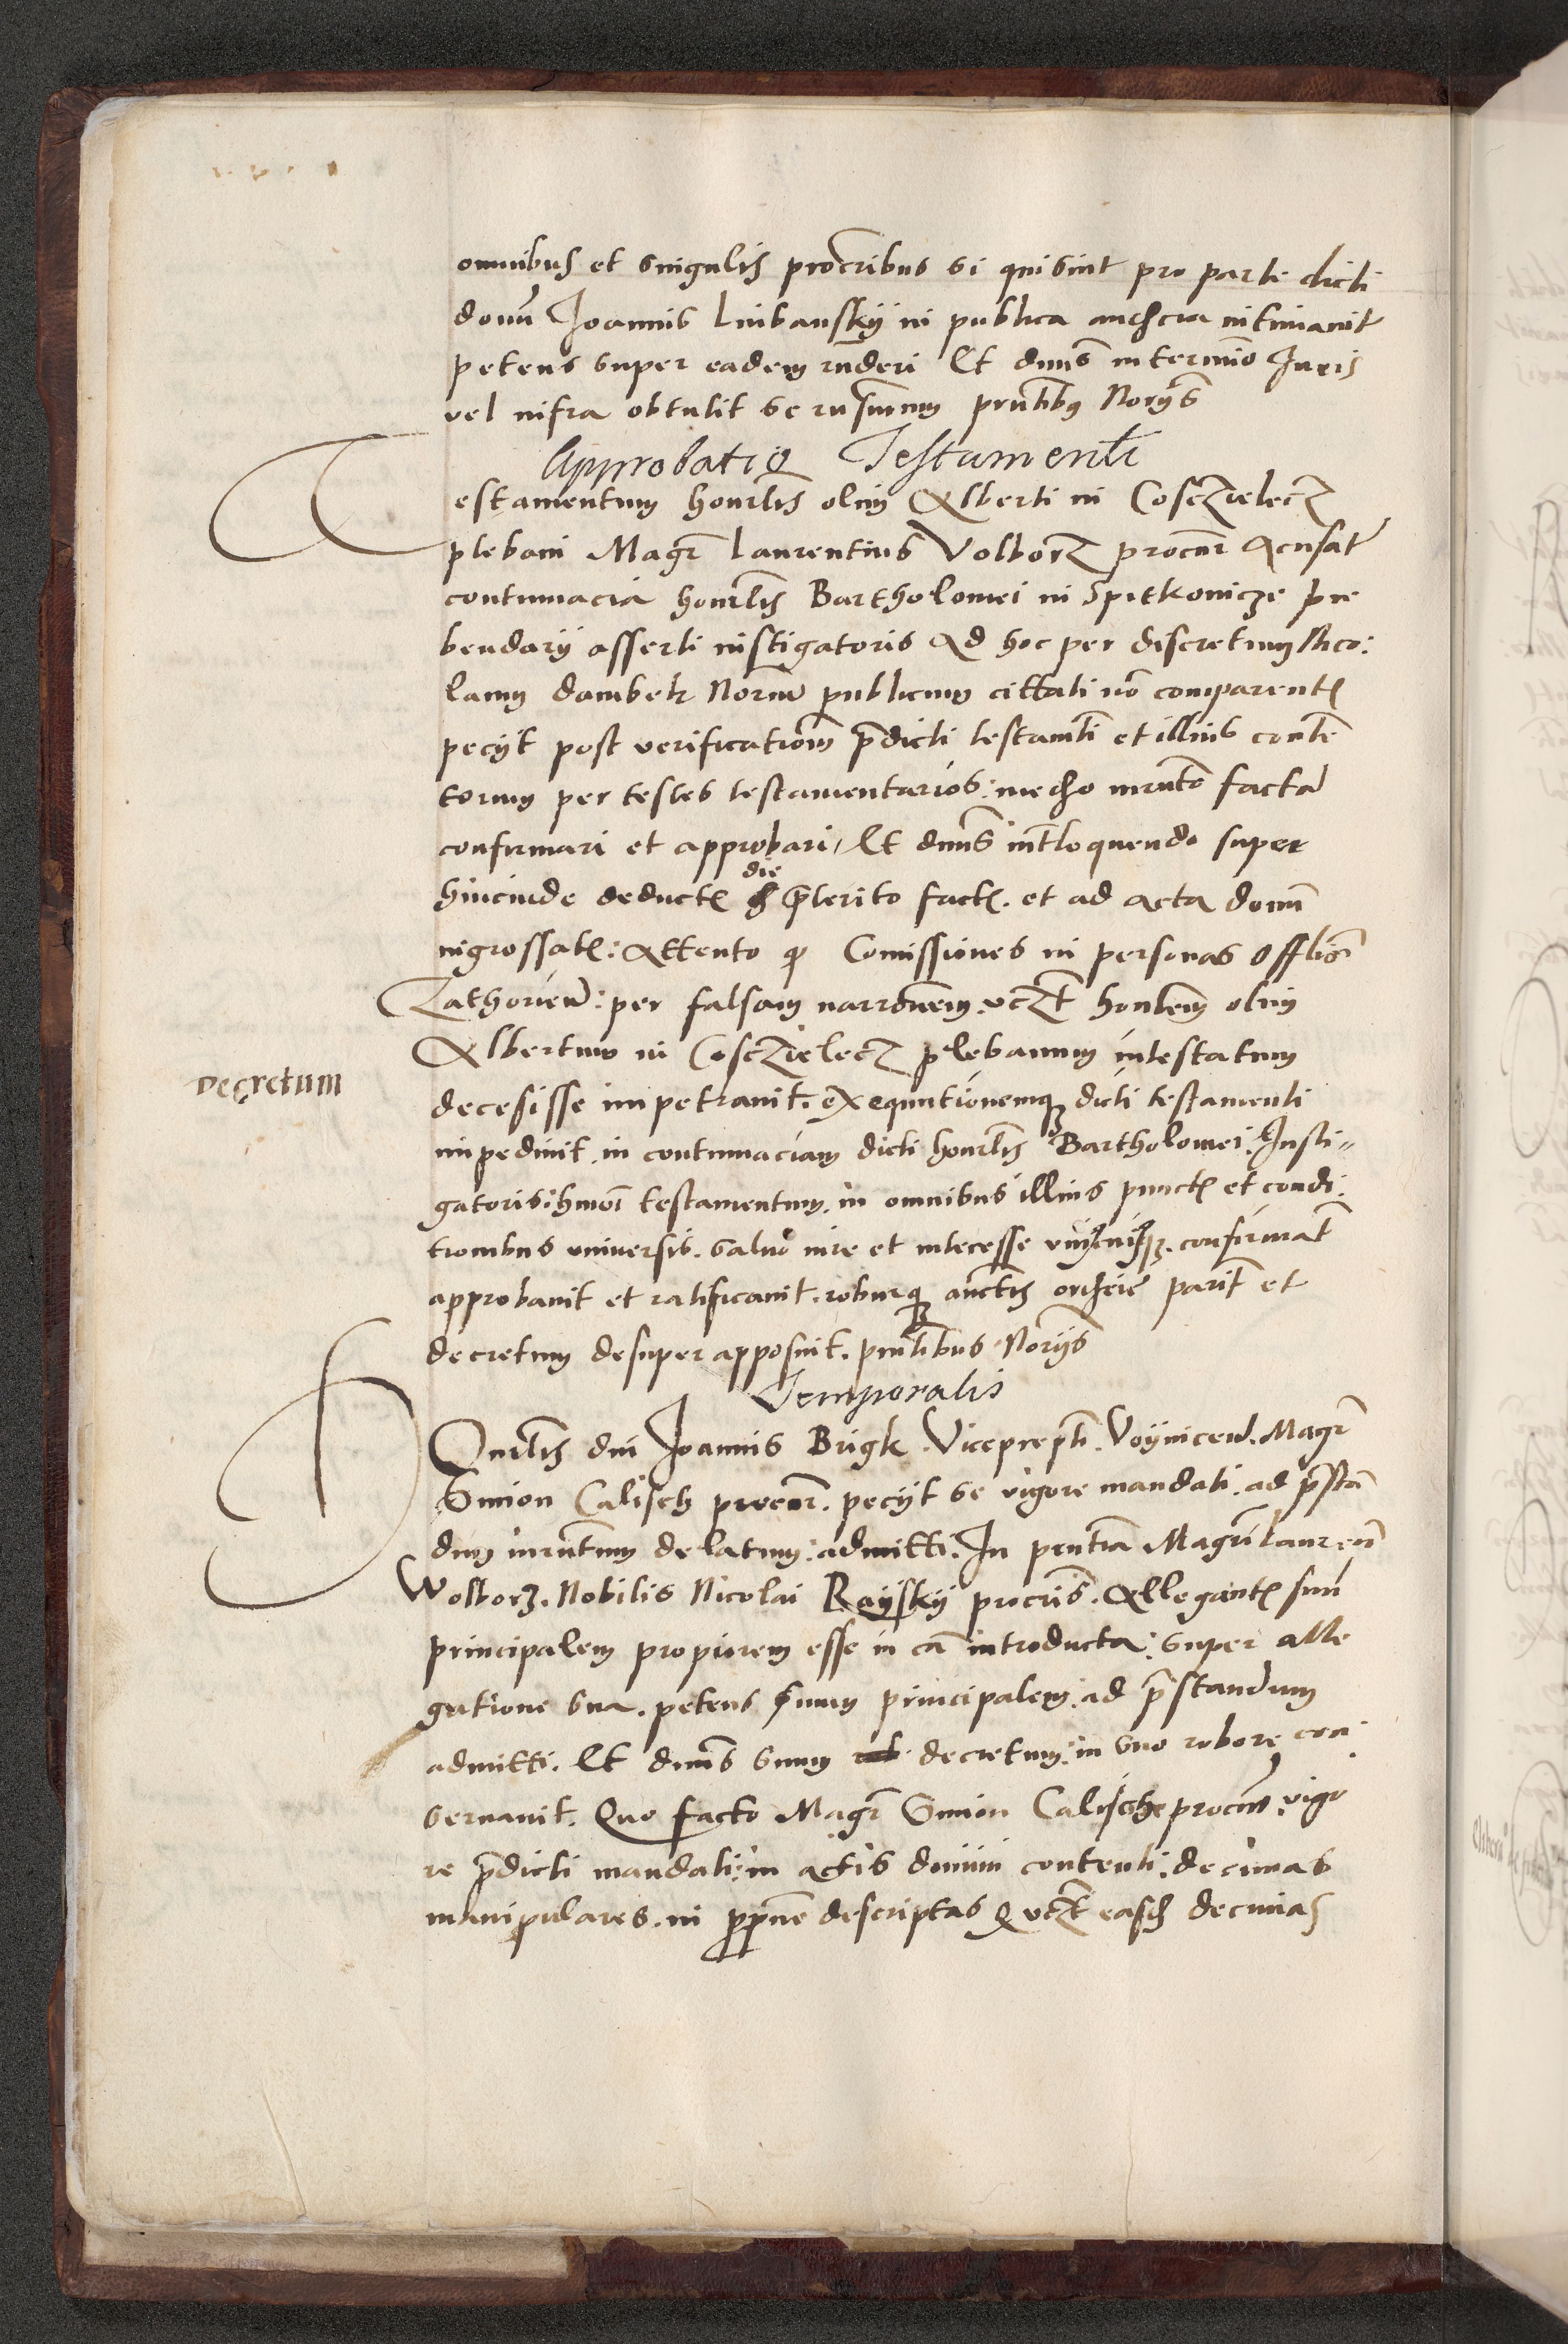 omnibus et singulis procribus si qui sint pro parte dicti
domi Joannis Lubansky in publica audiencia intimavit
petens super eadem videri Et dnus in termino Iuris
vel infra obtulit se prntibus Norijs
Approbatio Testamenti
Testamentum honrlis olim Alberti in Cosczielecz
plebani Magr Laurentius Volborz procur Acusat
contumacia honrlis Bartholomei in Spitkonicze pre
bendarij asserti instigatoris Ad hoc per discretum Nico:
laum dambek Norium publicum cittati no comparent
pecijt post verificationem predicti testamti et illius conte
torum per testes testamentarios: medio inrnto facta
confirmari et approbari, Et dnus intloquendo super
hincinde deduct die preterito fact. et ad acta domi
ingrossat: Attento q Comissiones in personas Offlis
per falsam narronem. vczt honlem olim
Albertum in Cosczielecz plebanum intestatum
decretum
decesisse impetravit. exequutionemq dicti testamenti
impedivit in contumaciam dicti honrlis Bartholomei. Insti=
gatoris: hmoi testamentum. in omnibus illius punct et condi.
tionibus universis. salvo iure et interesse confirmat
approbavit et ratificavit. roburq auctis ordrie parit et
decretum desuper apposuit. prntibus Norijs
Temporalis
HOnrlis dni Joannis Brigk. Viceprepti. Voynicen. Magr
Simon Calisch procur. pecijt se vigore mandati. ad presta
dum inrntum delatum: admitti. In pntia Magri Lauren
Wolborz. Nobilis Nicolai Raysky procris. Allegant suu
principalem propiorem esse in ca introducta: super alle
gatione sua. petens suum principalem. ad prestandum
admitti. Et dnus suum decretum: in suo robore con
servavit. Quo facto Magr Simon Calisch procur. vigo
re predicti mandati: in actis domini contenti. decimas
manipulares. in ppne descriptas vczt easd decimas